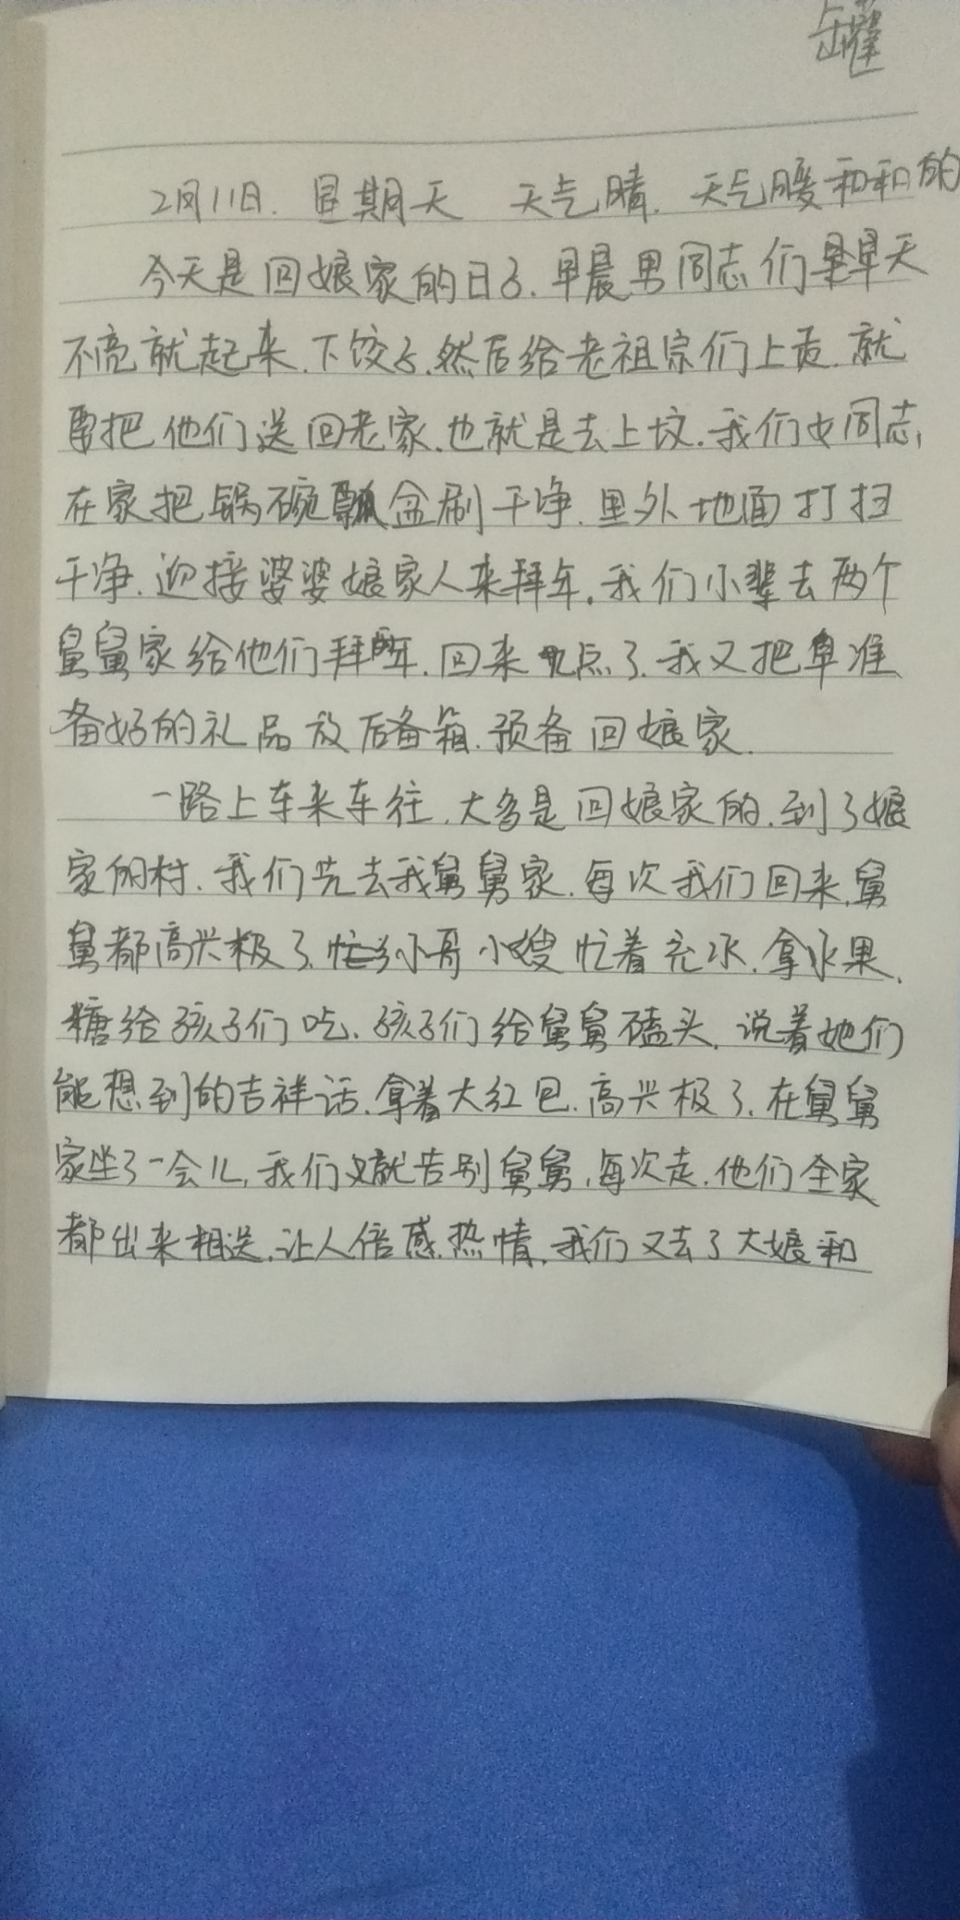 罐
2月11日. 星期天 天气晴. 天气暖和和的
今天是回娘家的日子.早晨男同志们早早天
不亮就起来.下饺子.然后给老祖宗们上贡.就
要把他们送回老家.也就是去上坟.我们女同志,
在家把锅碗瓢盆刷干净.里外地面打扫
干净.迎接婆婆娘家人来拜年。我们小辈去两个
舅舅家给他们拜年.回来九点了.我又把早准
备好的礼品放后备箱.预备回娘家.
一路上车来车往.大多是回娘家的.到了娘
家的村.我们先去我舅舅家.每次我们回来,舅
舅都高兴极了.小哥小嫂忙着充水.拿水果.
糖给孩子们吃.孩子们给舅舅磕头.说着她们
能想到的吉祥话.拿着大红包.高兴极了.在舅舅
家坐了一会儿,我们就告别舅舅,每次走.他们全家
都出来相送.让人倍感热情.我们又去了大娘和